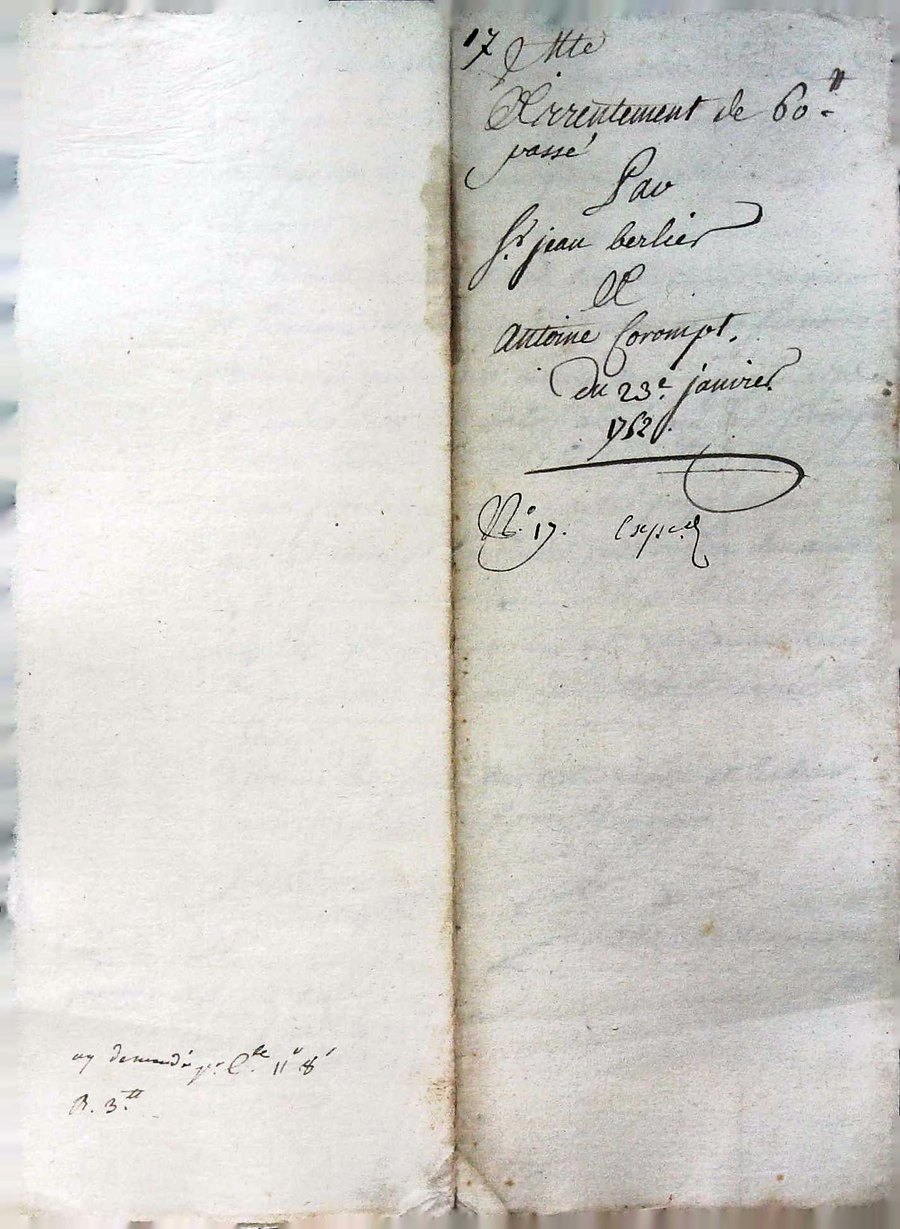 17
Arrentement de 60 ₶
passé
Par
Sr jean berlier
A
Antoine Corompt.
du 23e janvier
1762.
No 17. Exped
ay demandé pr
R. 3 ₶